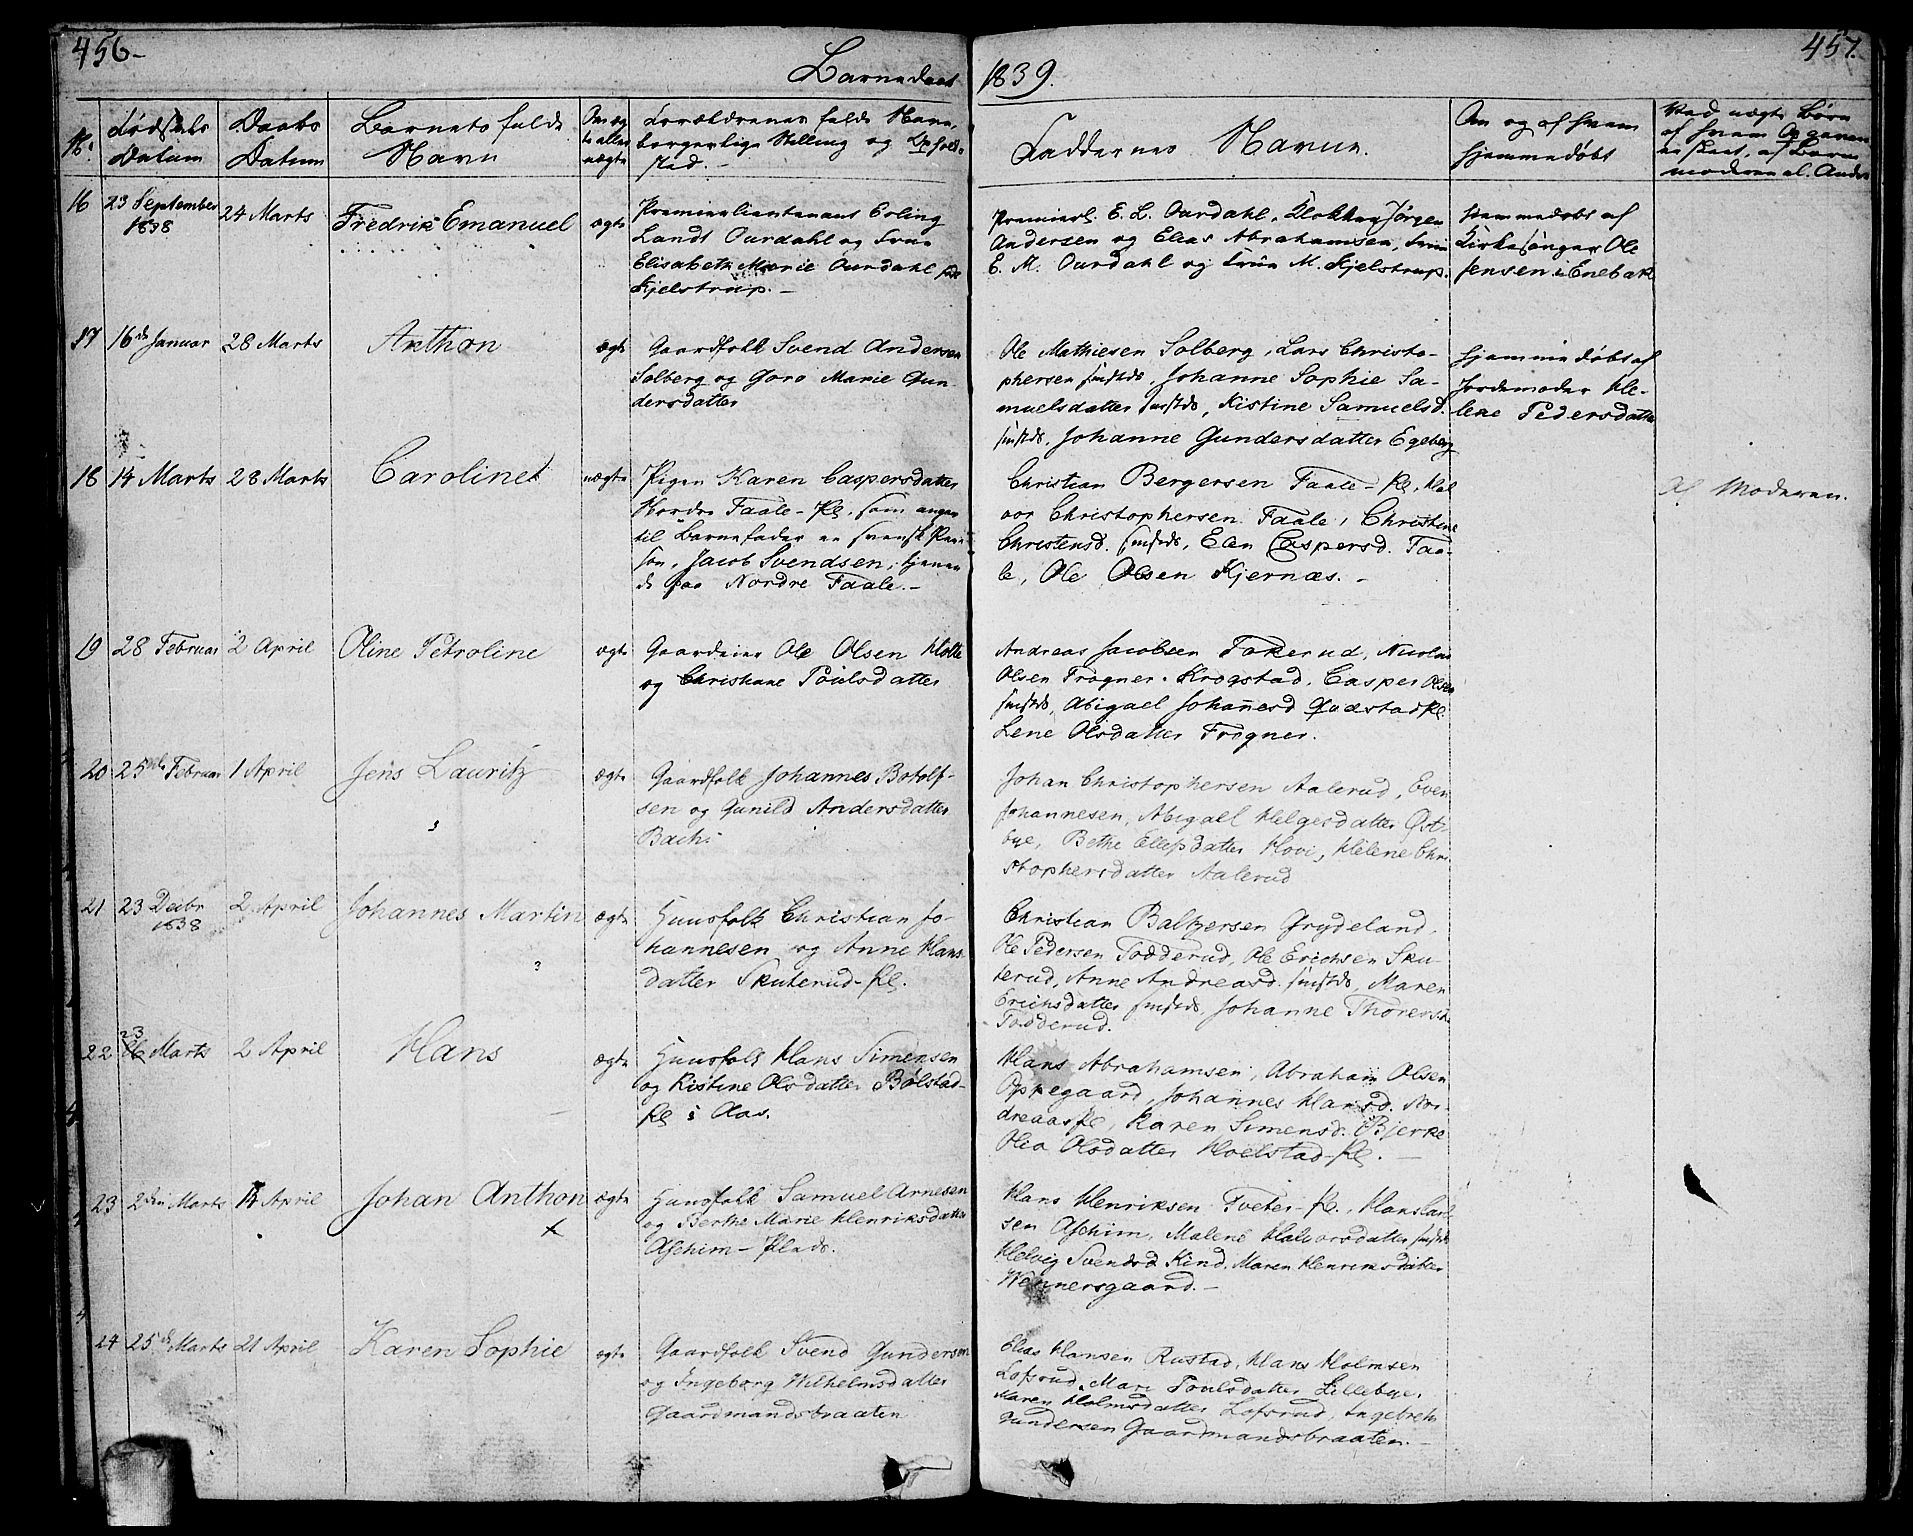 456-
Barnedaab
1839.
457.
No.
Fødsels
Datum
Daabs
Datum
Barnets fulde
Navn
Om æg
te eller
uægte
Forældrenes fulde Navn,
borgerlige Stilling og Opholds
sted.-
Faddernes Navne.
Om og af hvem
hjemmedøbt
Ved uægte Børn
af hvem Angivelsen
er skeet, af Barne
moderen el. Andre
16
23 September
1838
24 Marts
Fredrik Emanuel
ægte
Premierlieutenant Erling
Landt Ourdahl og Frue
Elisabeth Marie Ourdahl fød
Kjelstrup.-
Premierl. E. L. Ourdahl, Klokker Jørgen
Andersen og Elias Abrahamsen, Frue
E. M. Ourdahl og Frue M. Kjelstrup.
hjemmedøbt af
Kirkesanger Ole
Jensen i Enebak
17
16de Januar
28 Marts
Anthon
ægte
Gaardfolk Svend Andersen
Solberg og Goro Marie Gun-
dersdatter
Ole Mathiesen Solberg, Lars Christo-
phersen sammesteds, Johanne Sophie Sa-
muelsdatter smstds, Kistine Samuelsd.
smstds, Johanne Gundersdatter Egeberg
hjemmedøbt af
Jordemoder He-
lene Pedersdatter
18
14 Marts
28 Marts
Caroline
uægte
Pigen Karen Caspersdatter
Nordre Faale-Pl., som angav
til Barnefader en svensk Per-
son, Jacob Svendsen, tjenen
de paa Nordre Faale.-
Christian Bergersen Faale-Pl, Hal
vor Christophersen Faale, Christine
Christensd. smstds, Elen Caspersd. Faa-
le, Ole Olsen Kjernæs.-
Af Moderen.
19
28 Februar
2 April
Oline Petroline
ægte
Gaardeier Ole Olsen Holte
og Christiane Poulsdatter
Andreas Jacobsen Fokerud, Nicolai
Olsen Frogner, Krogstad, Casper Olsen
smstds, Abigael Johannesd Qvæstad Pl.
Lene Olsdatter Frogner.
20
25de Februar
1 April
Jens Lauritz
ægte
Gaardfolk Johannes Botolf-
sen og Gunild Andersdatter
Bach
Johan Christophersen Aalerud, Even
Johannesen, Abigael Helgesdatter Øst-
bye, Bethe Ellefsdatter Hovi, Helene Chri-
stophersdatter Aalerud
21
23 Decbr
1838
2 April
Johannes Martin
ægte
Huusfolk Christian Jo-
hannesen og Anne Hans-
datter Skuterud-Pl.
Christian Baltzersen Grydeland,
Ole Pedersen Tødderud, Ole Erichsen Sku-
terud, Anne Andreasd. smstds, Maren
Erichsdatter smstds, Johanne Thoresd
Tødderud.
22
23
Marts
2 April
Hans
ægte
Huusfolk Hans Simensen
og Kistine Olsdatter Bølstad-
Pl i Aas.
Hans Abrahamsen, Abraham Olsen
Oppegaard, Johannes Hansd. Nor-
dreaas Pl, Karen Simensd. Bjerke
Olea Olsdatter Hoelstad-Pl.-
23
2den Marts
14 April
Johan Anthon
ægte
Huusfolk Samuel Arnesen
og Berthe Marie Henriksdatter
Aschim-Plads.
Hans Henriksen Tveter-Pl., Hans Carl
sen Aschim, Malene Halvorsdatter smstds
Helvig Svendsd Kind, Maren Henriksdatter
Wennersgaard.-
24
25de Marts
21 April
Karen Sophie
ægte
Gaardfolk Svend Gundersen
og Ingeborg Wilhelmsdatter
Gaardmandsbraaten
Elias Hansen Rustad, Hans Holmsen
Lofsrud, Mari Poulsdatter Lillebye,
Maren Holmsdatter Lofsrud, Ingebreth
Gundersen Gaardmandsbraaten.-